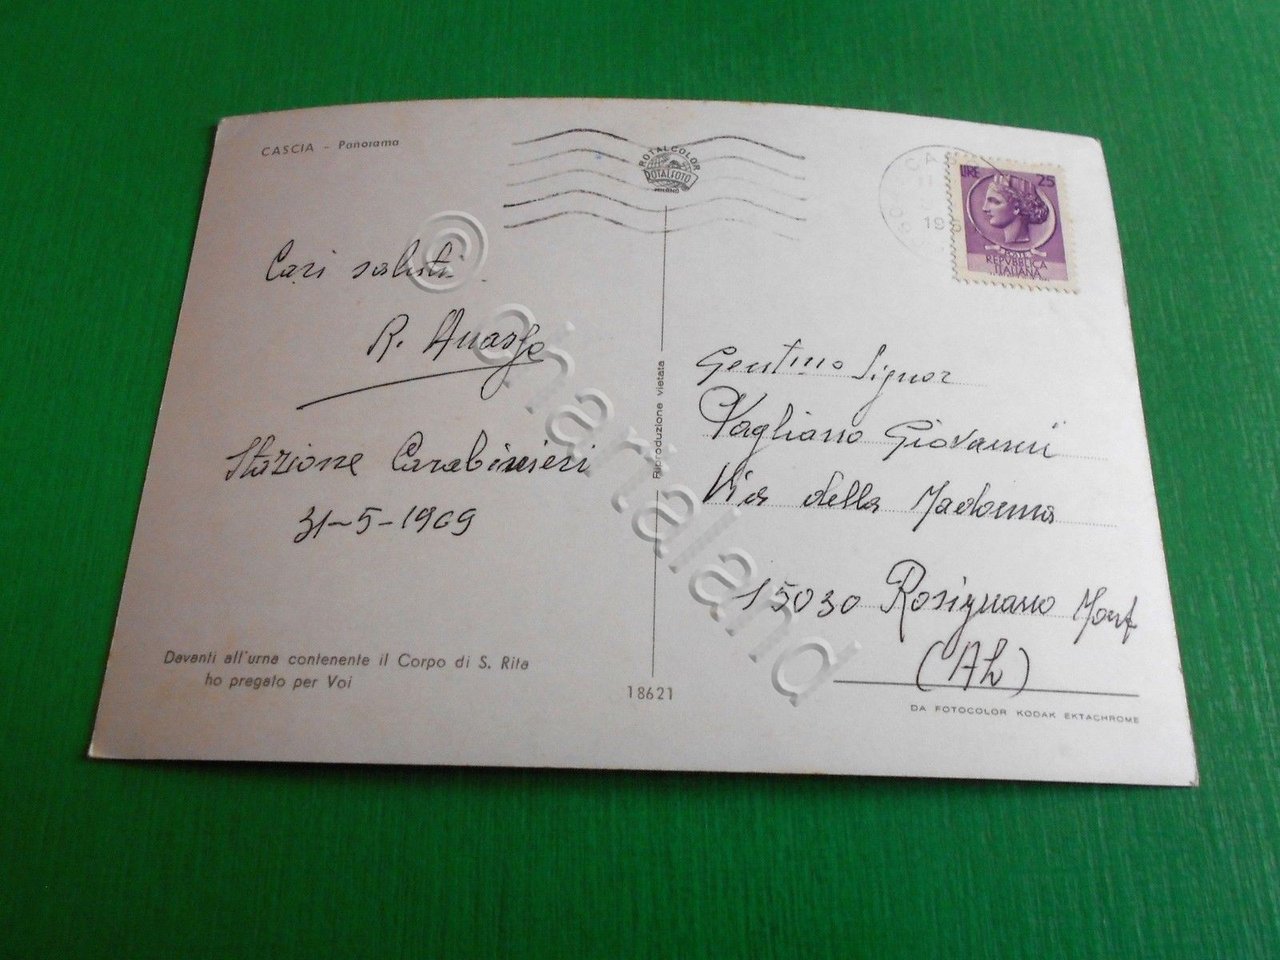 CASCIA - Panorama
ROTALCOLOR
ROTALFOTO
MILANO
LIRE 25
POSTE
REPUBBLICA
ITALIANA
Cari saluti
Stazione Carabinieri
31-5-1969
Davanti all'urna contenente il Corpo di S. Rita
ho pregato per Voi
Riproduzione vietata
18621
Gentimo Signor
Vagliano Giovanni
Via della Madonna
15030 Rosignano Monf
(AL)
DA FOTOCOLOR KODAK EKTACHROME
© chartaland